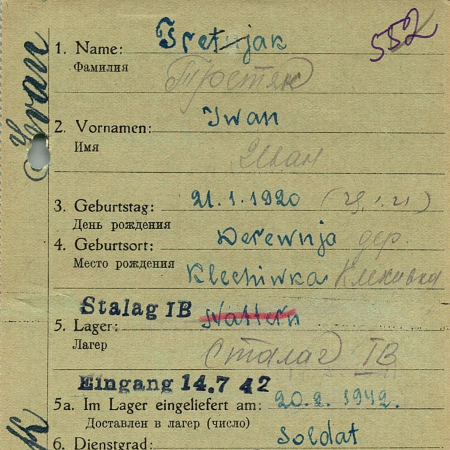 552
1. Name: Tretjak
Фамилия Третяк
2. Vornamen: Iwan
Имя Иван
3. Geburtstag: 21.1.1920 (21.1.21)
День рождения
4. Geburtsort: Derewnja дер.
Место рождения Klechiwka Клехивка
Stalag IB
5. Lager:
Лагер Сталаг IB
Eingang 14.7 42
5a. Im Lager eingeliefert am: 20.2.1942.
Доставлен в лагер (число)
6. Dienstgrad: Soldat
Iwan